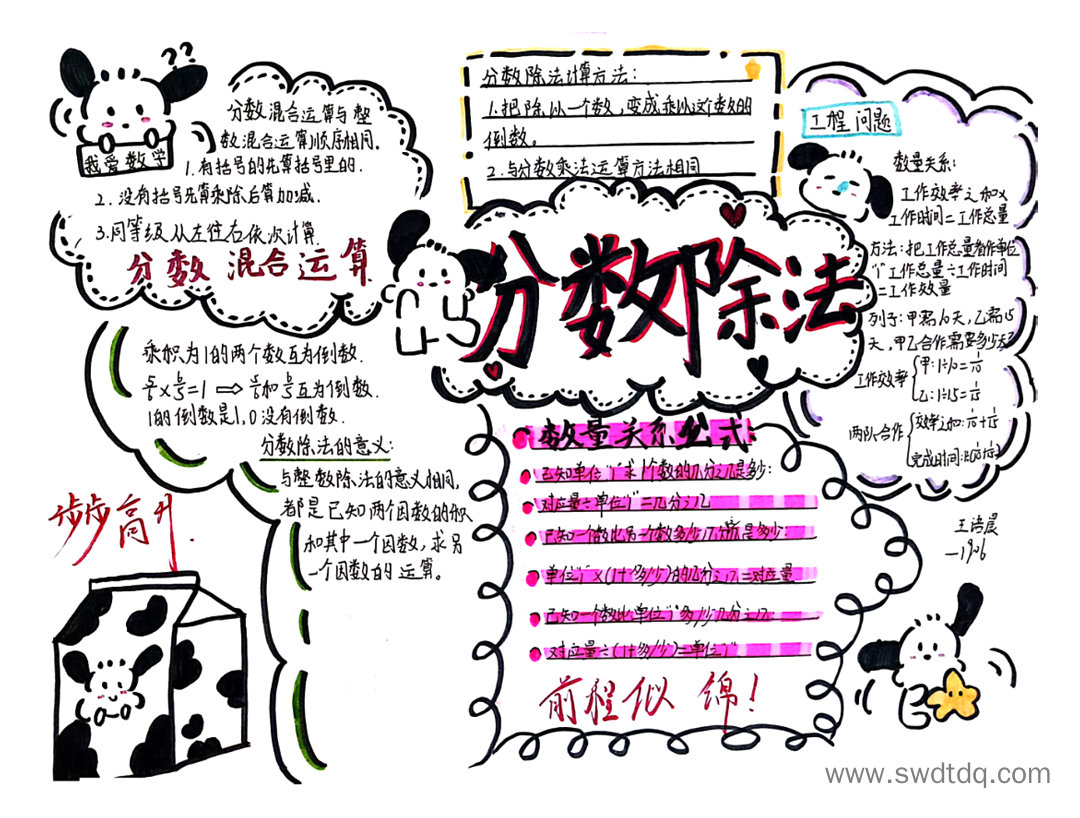 ??
我爱数学
分数混合运算与整
数混合运算顺序相同。
1.有括号的先算括号里的.
2.没有括号先算乘除后算加减.
3.同等级从左往右依次计算.
分数混合运算
乘积为1的两个数互为倒数.
1的倒数是1,0没有倒数.
分数除法的意义:
与整数除法的意义相同,
都是已知两个因数的积
和其中一个因数,求另
一个因数的运算。
步步高升
分数除法计算方法:
1.把除以一个数,变成乘以这个数的
倒数。
2.与分数乘法运算方法相同
分数除法
数量关系公式:
已知单位"1"求1个数的几分之几是多少:
对应量÷单位"1"=几分之几
已知一个数比另一个数多少几分之几是多少:
单位"1"×(1±多/少)的几分之几=对应量
已知一个数比单位"1"多/少几分之几:
对应量÷(1±多/少)=单位"1"
前程似锦!
工程问题
数量关系:
工作效率之和×
工作时间=工作总量
方法:把工作总量看作单位
"1"工作总量÷工作时间
=工作效量
列子:甲需10天,乙需15
天,甲乙合作需要多少天?
工作效率
甲:1÷10=1/10
乙:1÷15=1/15
两队合作
效率之和:1/10+1/15
完成时间:
www.swdtdq.com